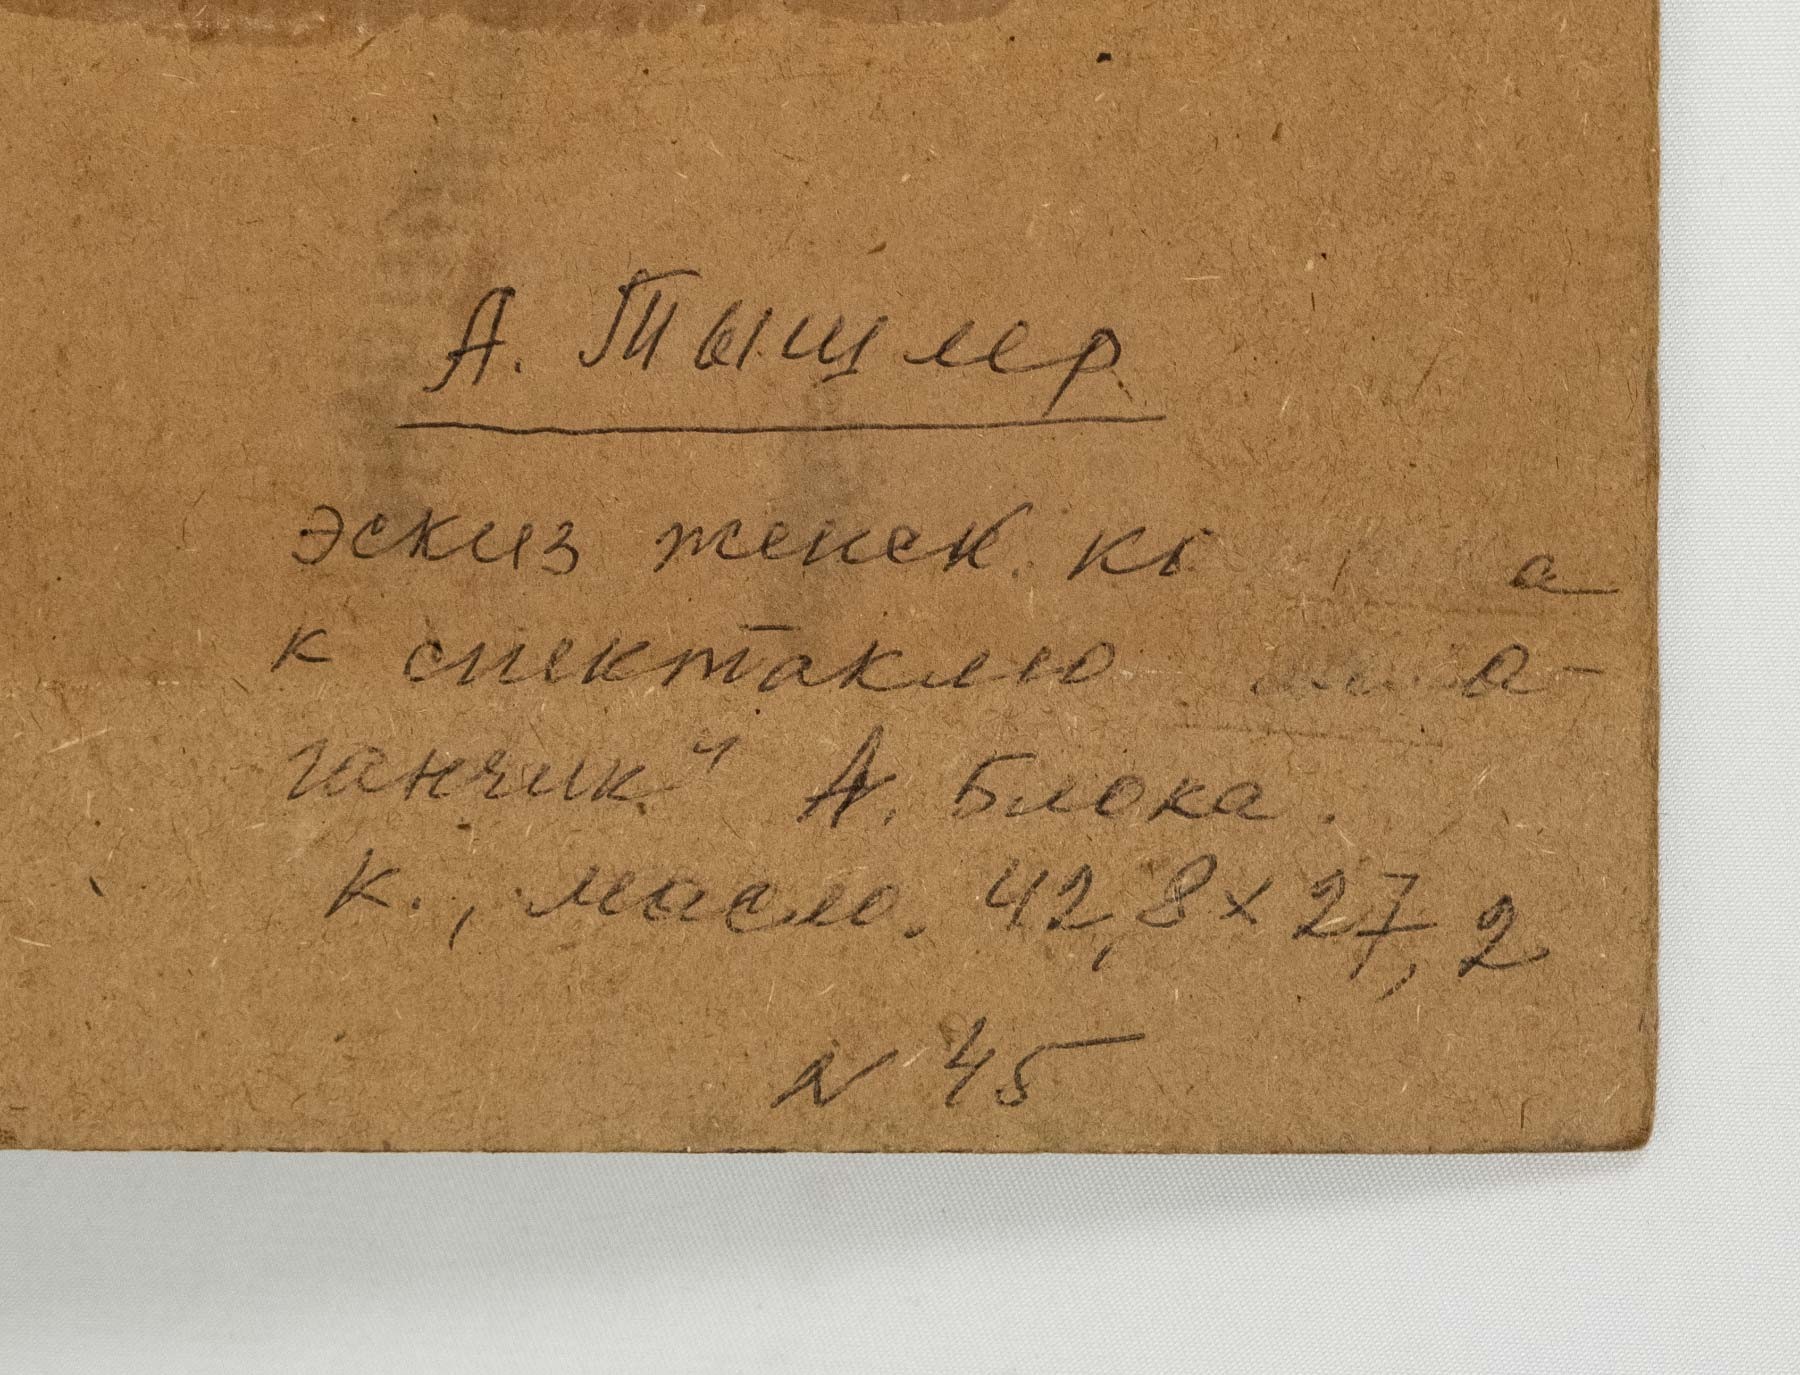 А. Тышлер
эскиз женск.
к спектаклю
ганчик" А. Блока.
К., масло. 42,8 х 27,2
N 45